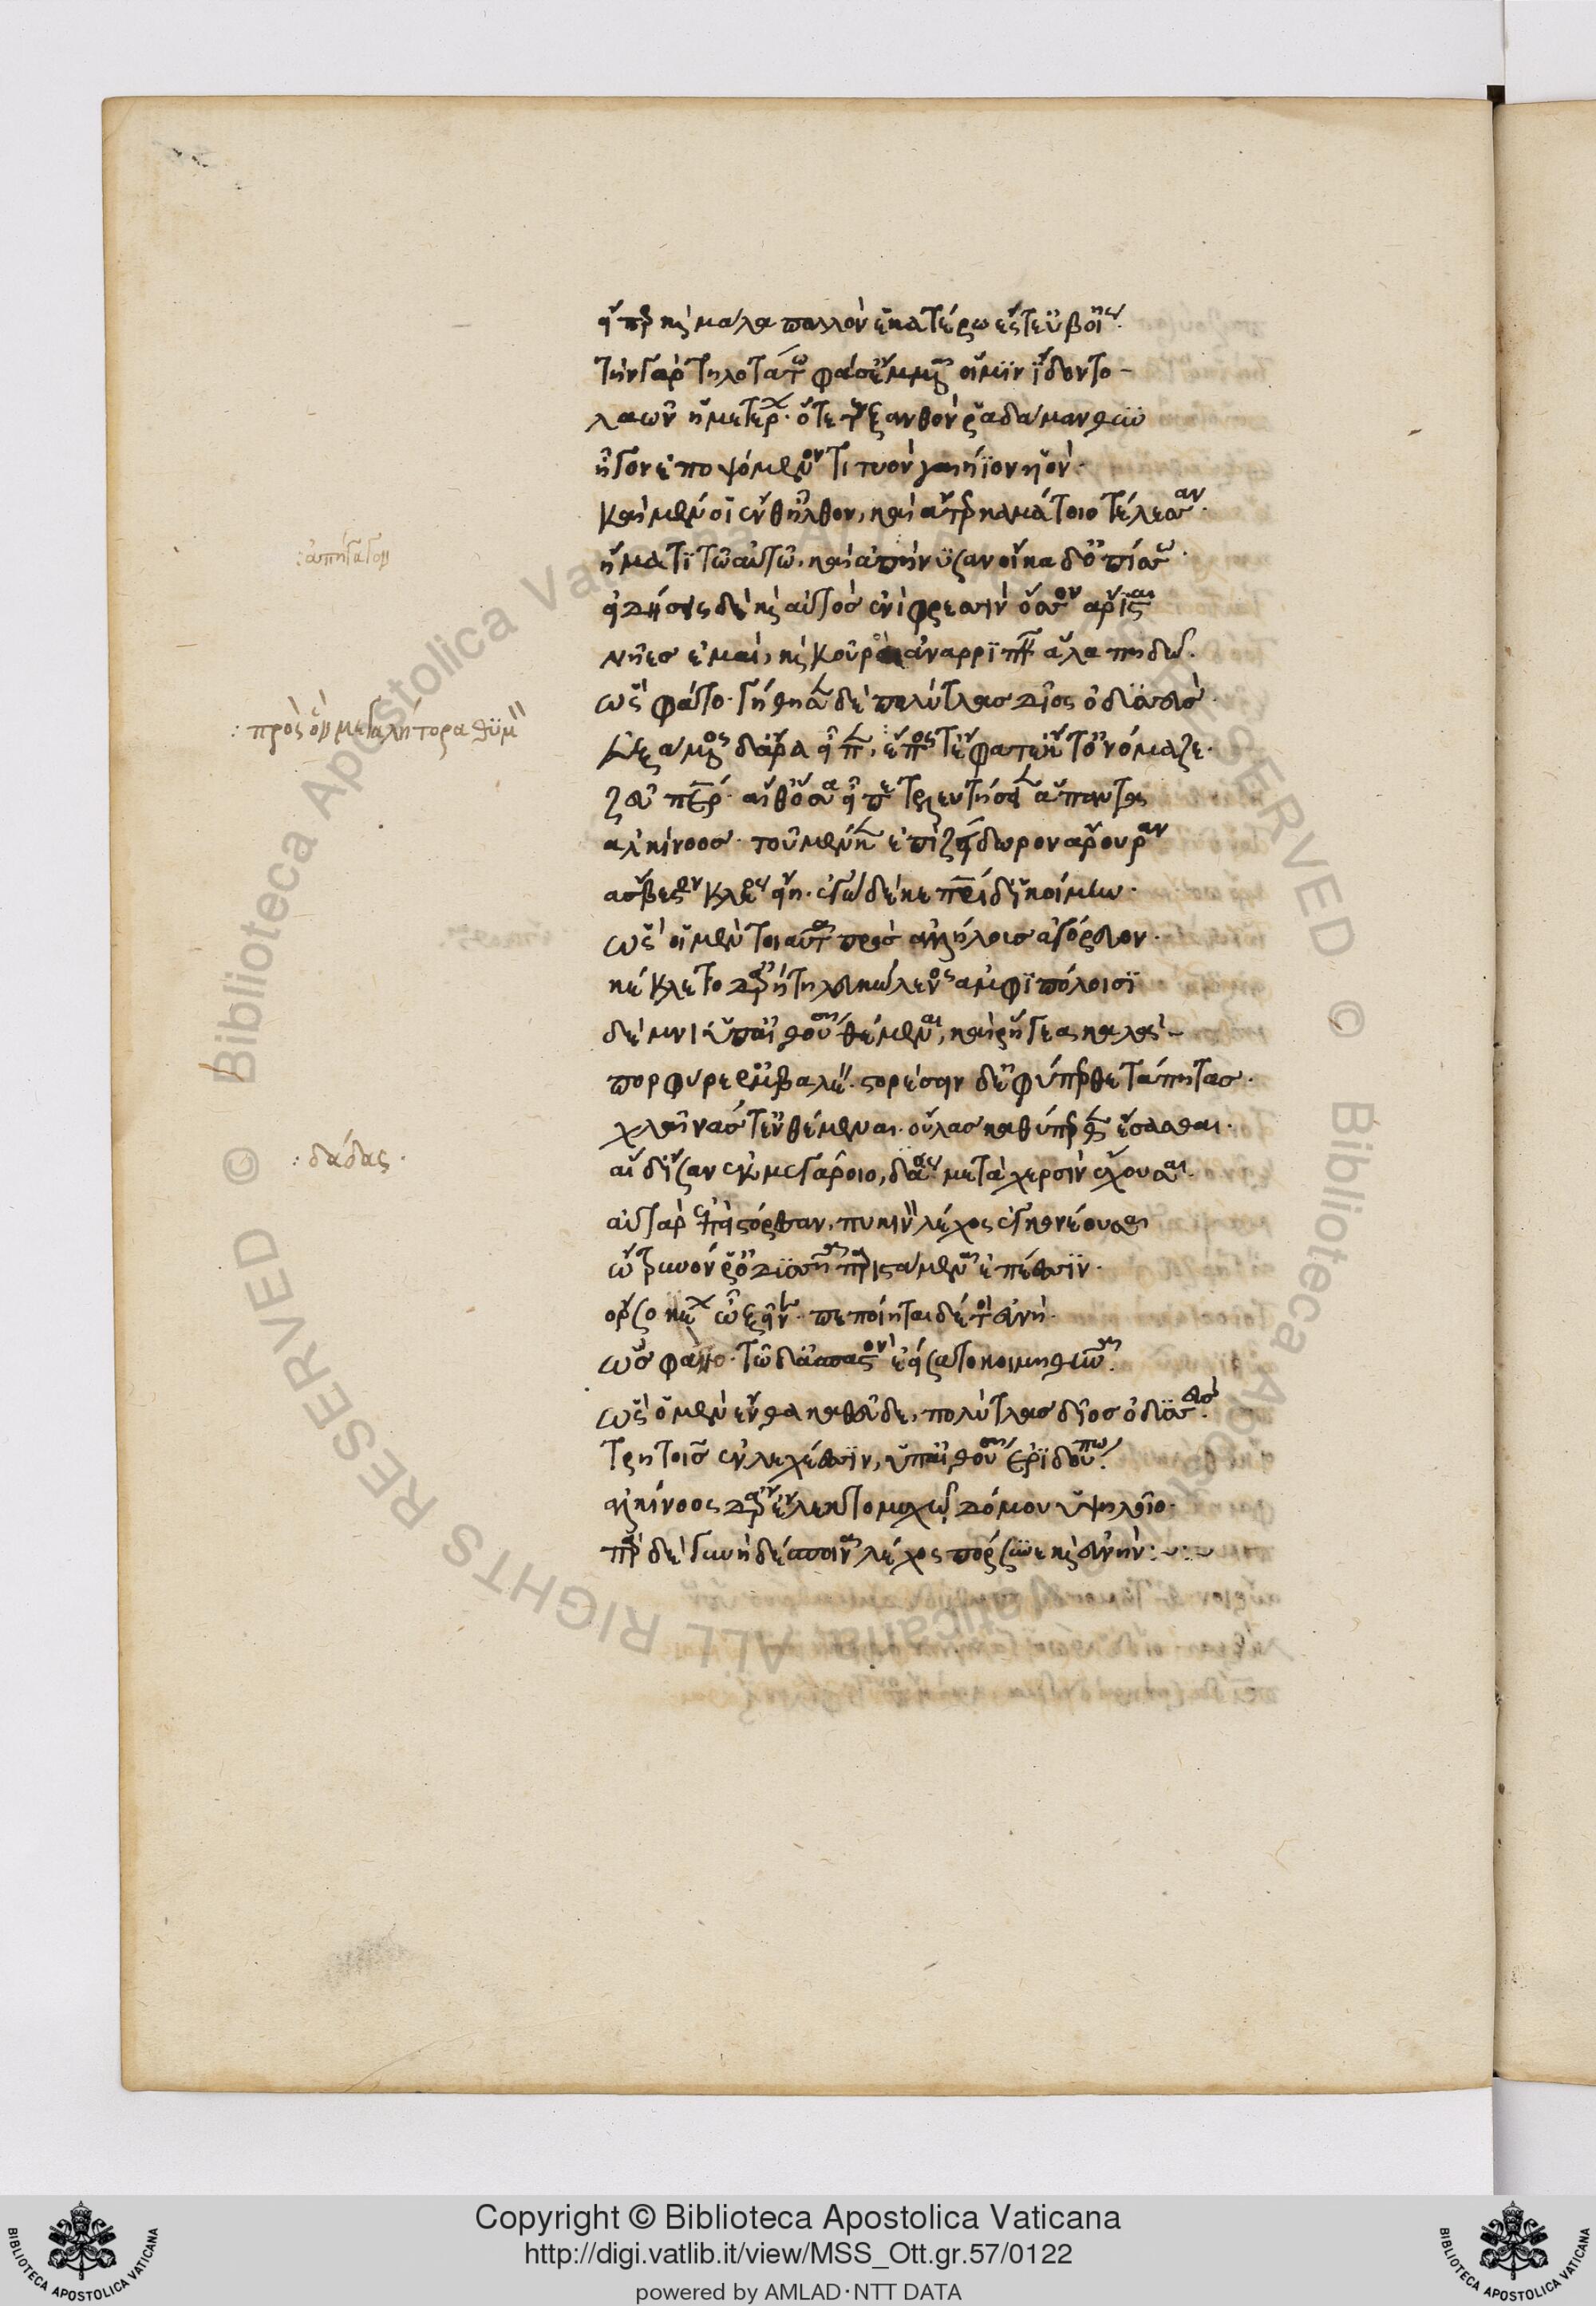 εἴπερ καὶ μάλα πολλὸν ἑκατέρω ἔστ' εὐβοίης·
τὴν γὰρ τηλοτάτω φάσ' ἔμμεναι οἵ μιν ἴδοντο
λαῶν ἡμετέρων· ὅτε τε ξανθὸν ῥαδάμανθυν
ἦγον ἐποψόμενον τιτυὸν γαιήϊον υἱόν·
καὶ μὲν οἱ ἔνθ' ἦλθον, καὶ ἄτερ καμάτοιο τέλεσσαν·
ἤματι τῷ αὐτῷ, καὶ ἀπήνυσαν οἴκαδ' ὀπίσσω·
: ἀπήγαγον
εἰδήσεις δὲ καὶ αὐτὸς ἐνὶ φρεσὶν ὅσσον ἄρισται
νῆες ἐμαί, καὶ κοῦροι ἀναρρίπτειν ἅλα πηδῷ.
ὣς φάτο· γήθησεν δὲ πολύτλας δῖος ὀδυσσεύς·
: πρὸς ὃν μεγαλήτορα θυμόν
εὐξάμενος δ' ἄρα εἶπεν, ἔπος τ' ἔφατ' ἔκ τ' ὀνόμαζε·
ζεῦ πάτερ· αἴθ' ὅσα εἶπε τελευτήσειεν ἅπαντα
ἀλκίνοος· τοῦ μέν κεν ἐπὶ ζείδωρον ἄρουραν
ἄσβεστον κλέος εἴη· ἐγὼ δέ κε πατρίδ' ἱκοίμην·
ὣς οἱ μὲν τοιαῦτα πρὸς ἀλλήλους ἀγόρευον·
κέκλετο δ' ἀρήτη λευκώλενος ἀμφιπόλοισι
δέμνι' ὑπ' αἰθούσῃ θέμεναι, καὶ ῥήγεα καλὰ
πορφύρε' ἐμβαλέειν· στορέσαι δ' ἐφύπερθε τάπητας·
χλαίνας τ' ἐνθέμεναι· οὔλας καθύπερθεν ἕσασθαι·
αἱ δ' ἴσαν ἐκ μεγάροιο, δάος μετὰ χερσὶν ἔχουσαι·
: δάδας·
αὐτὰρ ἐπεὶ στόρεσαν, πυκινὸν λέχος ἐγκονέουσαι
ὤτρυνόν ῥ' ὀδυσῆα παριστάμεναι ἐπέεσσιν·
ὄρσο κέων ὦ ξεῖνε· πεποίηται δέ τοι εὐνή·
ὣς φάτο· τῷ δ' ἀσπαστὸν ἐείσατο κοιμηθῆναι·
ὣς ὁ μὲν ἔνθα καθεῦδε, πολύτλας δῖος ὀδυσσεύς·
τρητοῖς ἐν λεχέεσσιν, ὑπ' αἰθούσῃ ἐριδούπῳ·
ἀλκίνοος δ' ἄρ' ἔλεκτο μυχῷ δόμου ὑψηλοῖο·
πὰρ δὲ γυνὴ δέσποινα λέχος πόρσυνε καὶ εὐνήν :
© Biblioteca Apostolica Vaticana ALL RIGHTS RESERVED
Copyright © Biblioteca Apostolica Vaticana
http://digi.vatlib.it/view/MSS_Ott.gr.57/0122
powered by AMLAD·NTT DATA
BIBLIOTECA APOSTOLICA VATICANA
BIBLIOTECA APOSTOLICA VATICANA